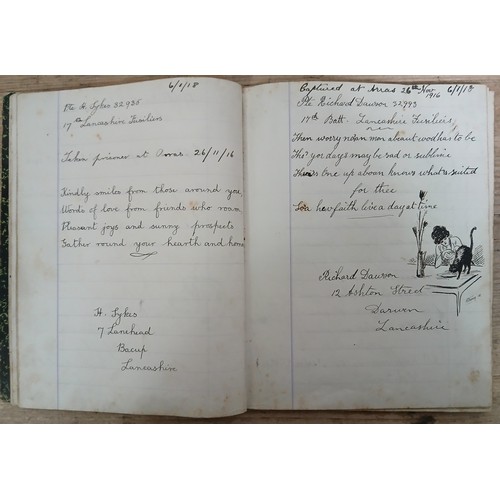 6/1/18
Pte H. Sykes 32936
17th Lancashire Fusiliers
Taken prisoner at Arras. 26/11/16
Kindly smiles from those around you,
Words of love from friends who roam
Pleasant joys and sunny prospects
Gather round your hearth and home
H. Sykes
7 Lanehead
Bacup
Lancashire
Captured at Arras 26th Nov 1916 6/1/18
Pte Richard Dawson 32993
17th Batt. Lancashire Fusiliers
Then worry not an mon abeaut wod has to be
Tho' yor days may be sad or sublime
There's One up aboun knows what's suited
for thee
So a hev faith live a day at a time
Richard Dawson
12 Ashton Street
Darwen
Lancashire